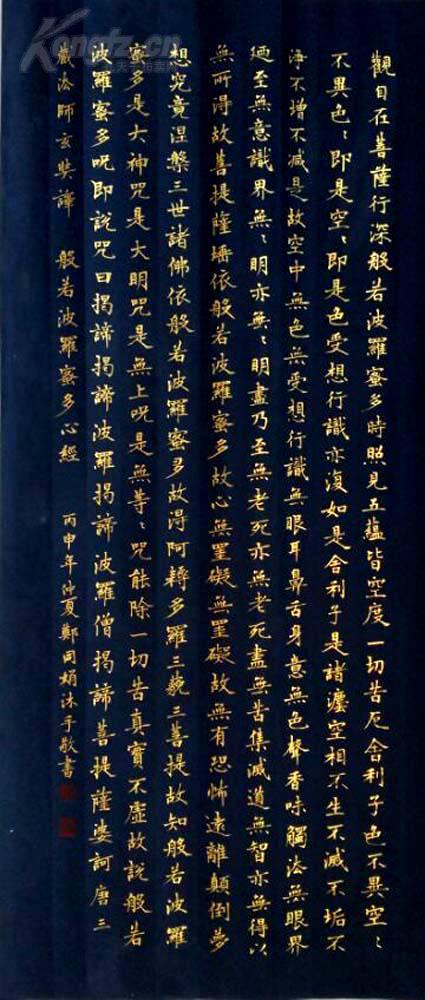 觀自在菩薩行深般若波羅蜜多時照見五蘊皆空度一切苦厄舍利子色不異空〻
不異色〻即是空〻即是色受想行識亦復如是舍利子是諸灋空相不生不滅不垢不
淨不增不減是故空中無色無受想行識無眼耳鼻舌身意無色聲香味觸法無眼界
迺至無意識界無〻明亦無〻明盡乃至無老死亦無老死盡無苦集滅道無智亦無得以
無所得故菩提薩埵依般若波羅蜜多故心無罣礙無罣礙故無有恐怖遠離顛倒夢
想究竟涅槃三世諸佛依般若波羅蜜多故得阿耨多羅三藐三菩提故知般若波羅
蜜多是大神咒是大明咒是無上呪是無等〻咒能除一切苦真實不虛故說般若
波羅蜜多呪即說咒曰揭諦揭諦波羅揭諦波羅僧揭諦菩提薩婆訶唐三
藏法師玄奘譯 般若波羅蜜多心經 丙申年仲夏鄭同娟沐手敬書